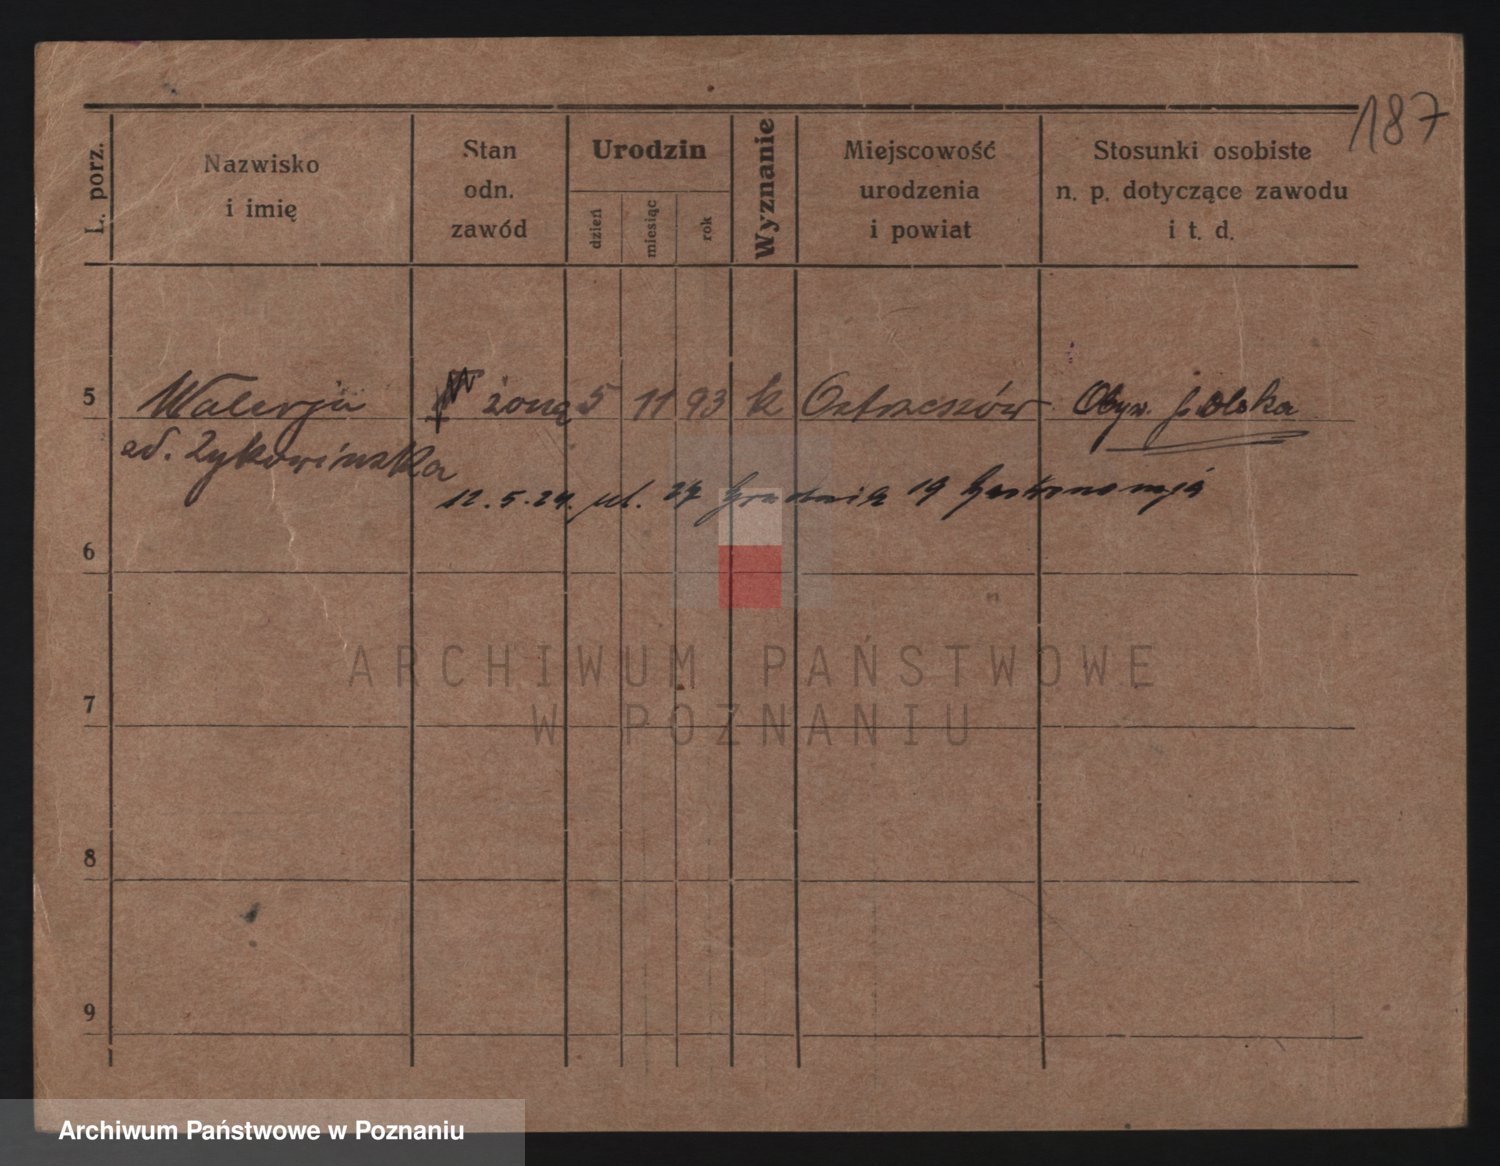 187
L. porz.
Nazwisko
i imię
Stan
odn.
zawód
Urodzin
dzień
miesiąc
rok
Wyznanie
Miejscowość
urodzenia
i powiat
Stosunki osobiste
n. p. dotyczące zawodu
i t. d.
5 Walerja żona 5 11 93 k Ostrzeszów Obyw. polska
12.5.24. ul. 27 Grudnia 19
6
7
8
9
ARCHIWUM PAŃSTWOWE
W POZNANIU
Archiwum Państwowe w Poznaniu